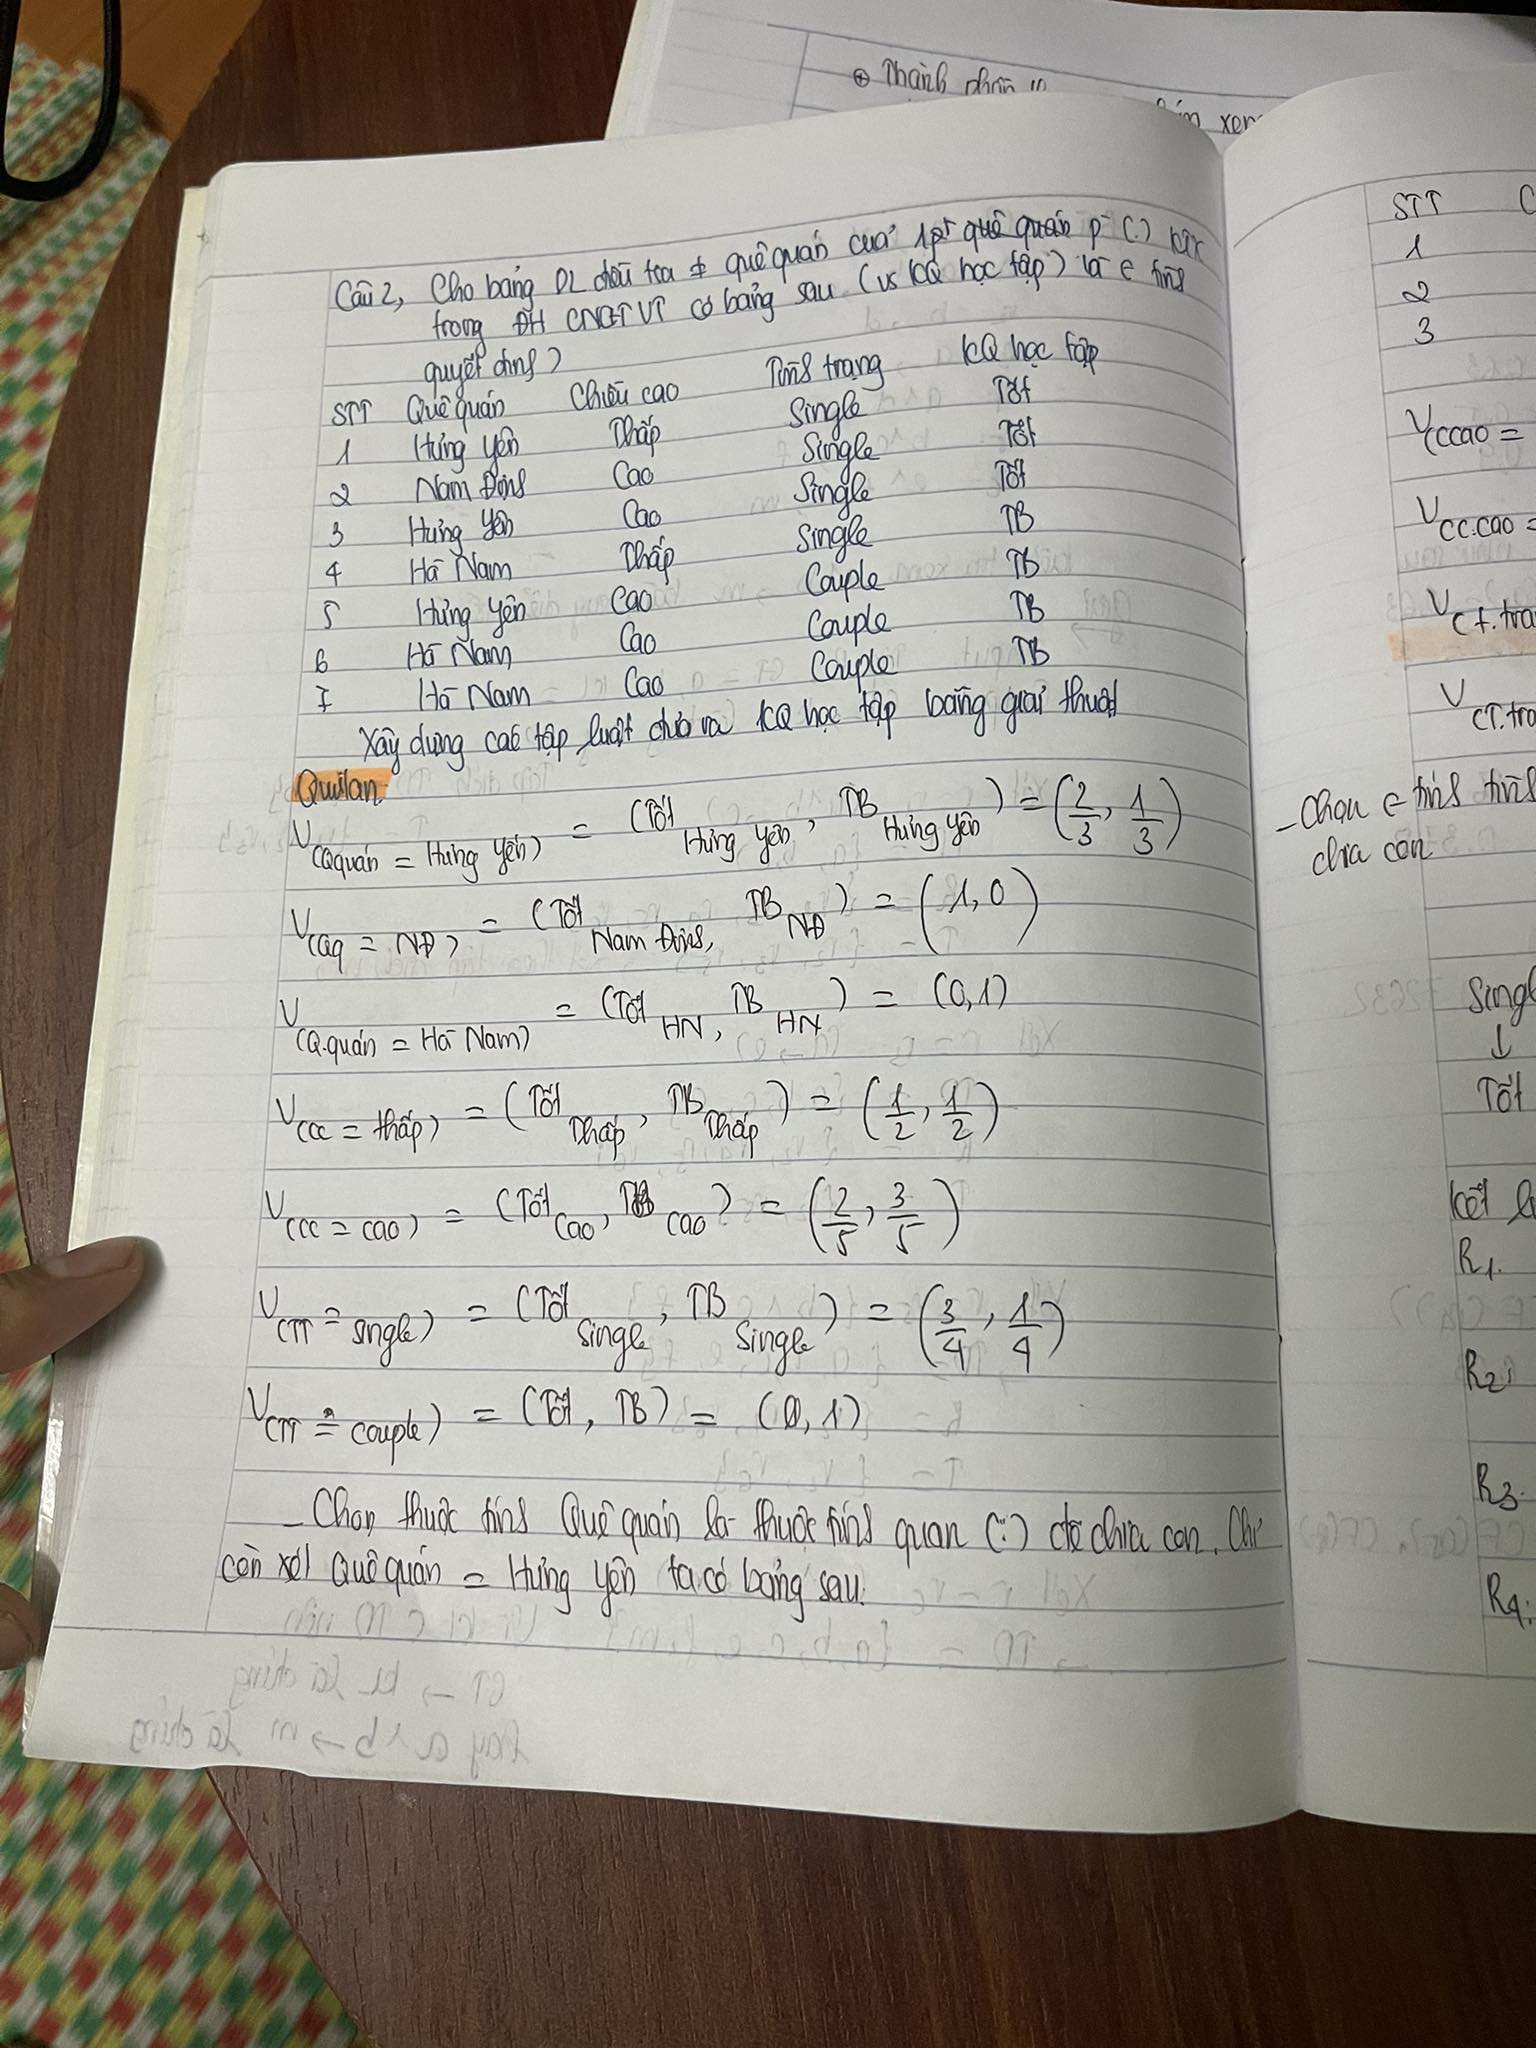 ⊕ Thành phần
xem
Câu 2, Cho bảng DL điều tra # quê quán của 1 quê quán p- (.)
trong ĐH CNGTVT có bảng sau (vs KQ học tập) là ∈ tính
quyết định)
STT Quê quán Chiều cao Tình trạng KQ học tập
1 Hưng Yên Thấp Single Tốt
2 Nam Định Cao Single Tốt
3 Hưng Yên Cao Single Tốt
4 Hà Nam Thấp Single TB
5 Hưng Yên Cao Couple TB
6 Hà Nam Cao Couple TB
7 Hà Nam Cao Couple TB
Xây dựng các tập luật dựa KQ học tập bằng giải thuật
Quilan
V(Qquán = Hưng Yên) = (Tốt Hưng Yên, TB Hưng Yên) = (2/3, 1/3)
V(Qq = NĐ) = (Tốt Nam Định, TB NĐ) = (1, 0)
V(Q.quán = Hà Nam) = (Tốt HN, TB HN) = (0, 1)
V(CC = thấp) = (Tốt Thấp, TB Thấp) = (1/2, 1/2)
V(CC = cao) = (Tốt Cao, TB cao) = (2/5, 3/5)
V(TT = single) = (Tốt Single, TB Single) = (3/4, 1/4)
V(TT = couple) = (Tốt, TB) = (0, 1)
- Chọn thuộc tính Quê quán là thuộc tính quan (:) để chia con. Chỉ
còn xét Quê quán = Hưng Yên ta có bảng sau:
STT C
1
2
3
V(CCao =
V(C.Cao =
V(t.tra
V(T.tro
- Chọn ∈ tính tình
chia con
Single
↓
Tốt
Kết l
R1.
R2:
R3.
R4: